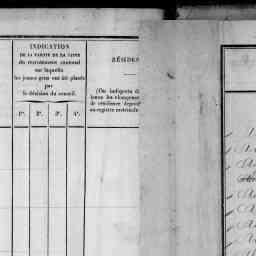 INDICATION
DE LA PARTIE DE LA LISTE
du recrutement cantonal
sur laquelle
les jeunes gens ont été placés
par
la décision du conseil.
1re. 2e. 3e. 4e.
RÉSIDEN
(On indiquera d
tenus les changemen
de résidence depuis
au registre matricule